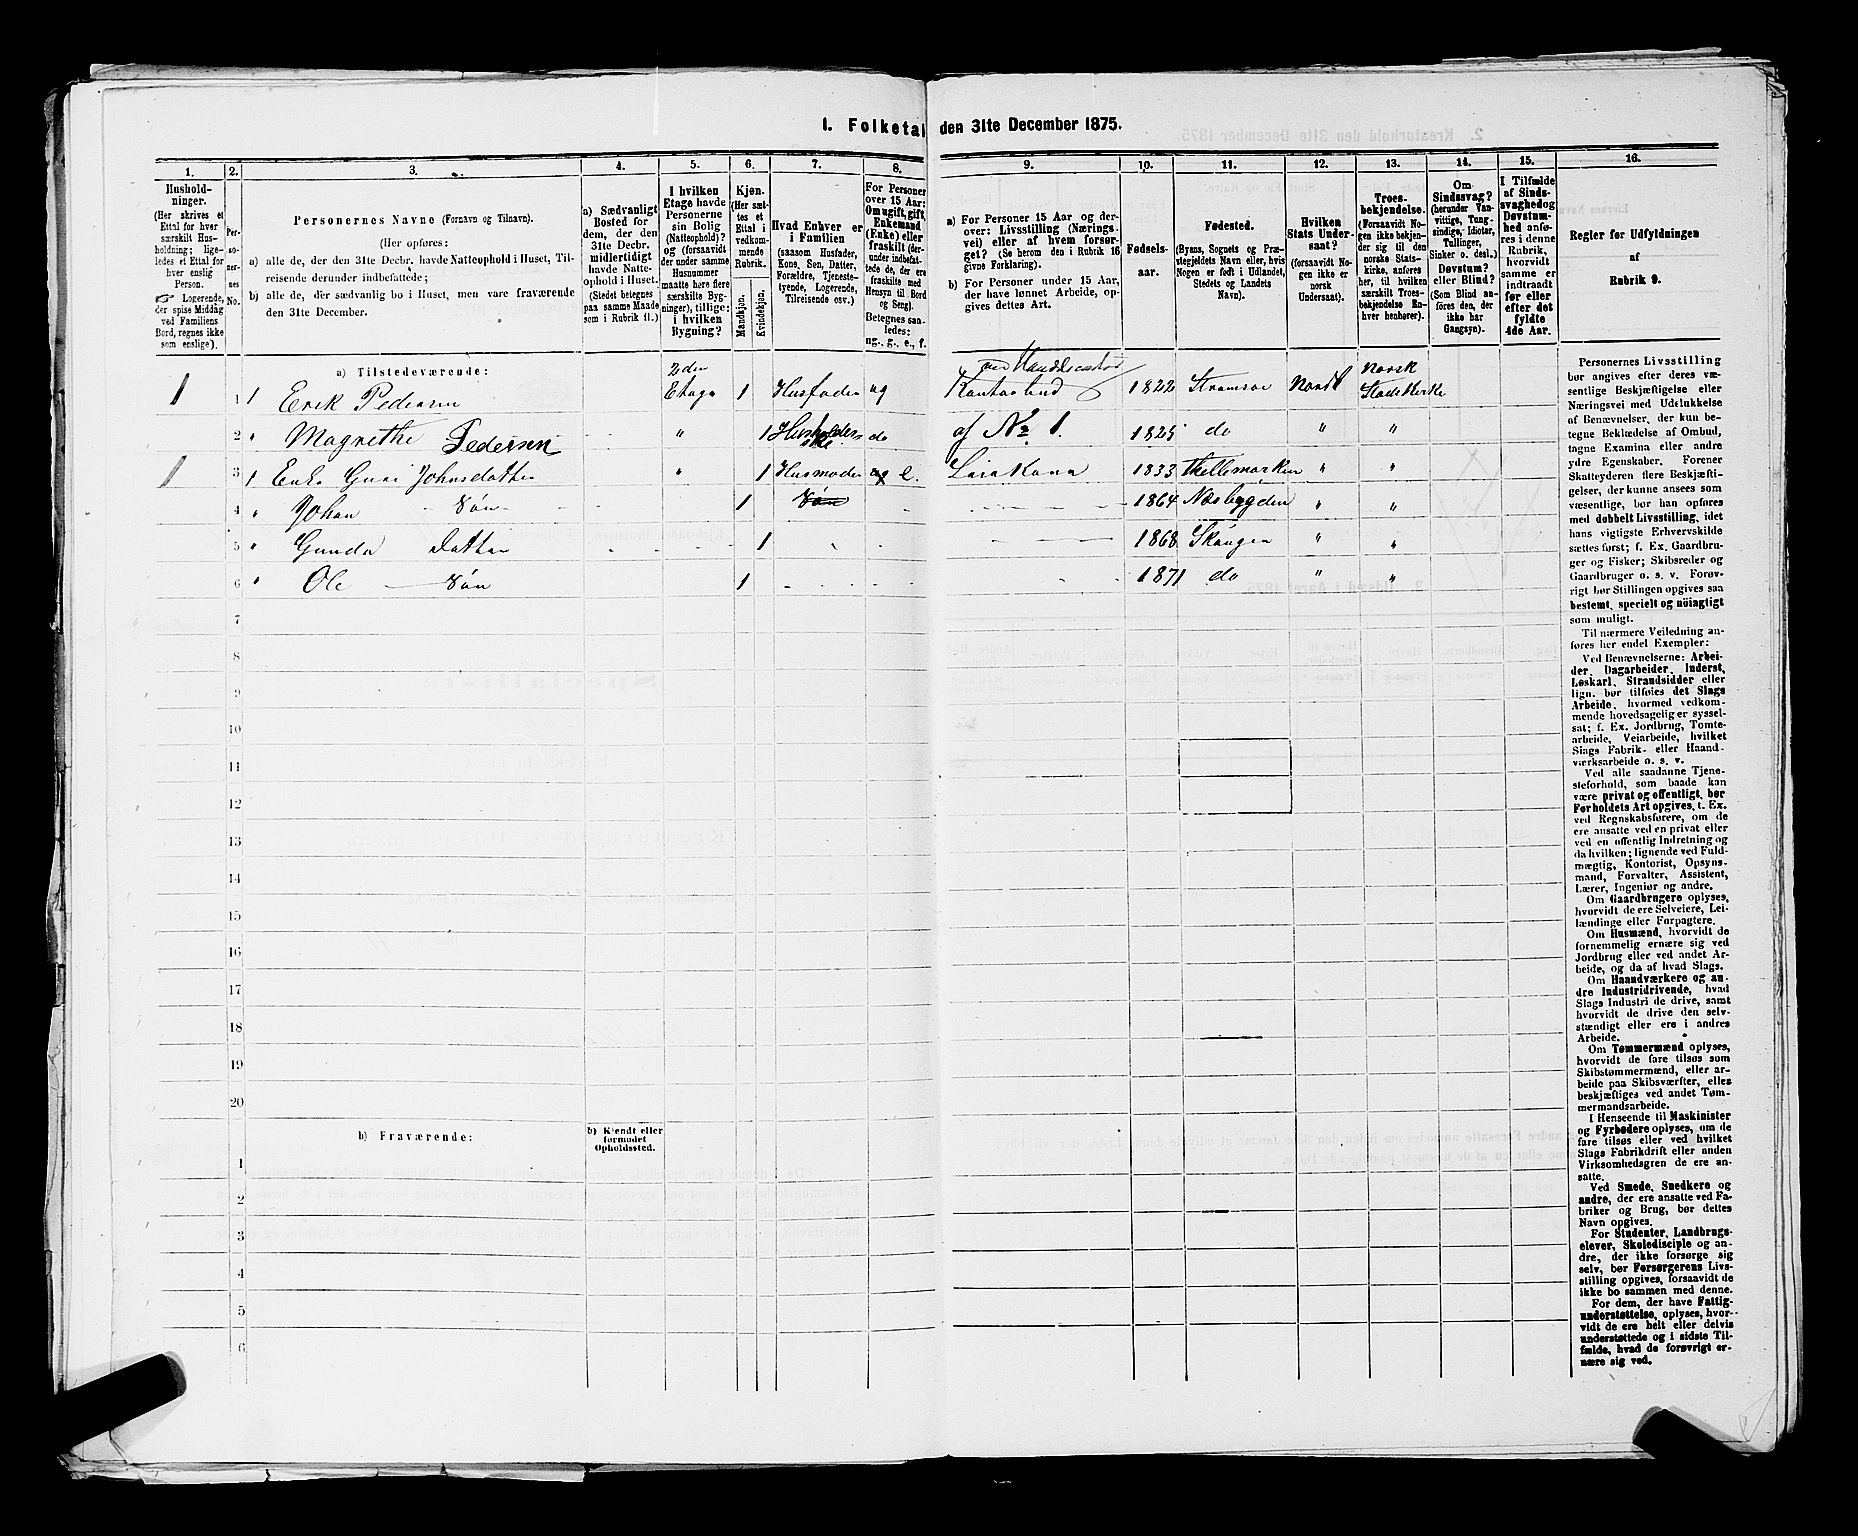 1. Folketal den 31te December 1875.
1.
Hushold-
ninger.
(Her skrives et
Ettal for hver
særskilt Hus-
holdning; lige-
ledes et Ettal for
hver enslig
Person.
☞ Logerende,
der spise Middag
ved Familiens
Bord, regnes ikke
som enslige).
2.
Per-
so-
ner-
nes
No.
3.
Personernes Navne (Fornavn og Tilnavn).
(Her opføres:
a) alle de, der den 31te Decbr. havde Natteophold i Huset, Til-
reisende derunder indbefattede;
b) alle de, der sædvanlig bo i Huset, men vare fraværende
den 31te December.
4.
a) Sædvanligt
Bosted for
dem, der den
31te Decbr.
midlertidigt
havde Natte-
ophold i Huset.
(Stedet betegnes
paa samme Maade
som i Rubrik 11.)
5.
I hvilken
Etage havde
Personerne
sin Bolig
(Natteophold)?
og (forsaavidt
der under samme
Husnummer
maatte høre flere
særskilte Byg-
ninger), tillige:
i hvilken
Bygning?
6.
Kjøn.
(Her sæt-
tes et
Ettal i
vedkom-
mende
Rubrik.
Mandkjøn.
Kvindekjøn.
7.
Hvad Enhver er
i Familien
(saasom Husfader,
Kone, Søn, Datter,
Forældre, Tjeneste-
tyende, Logerende,
Tilreisende osv.)
8.
For Personer
over 15 Aar:
Om ugift, gift,
Enkemand
(Enke) eller
fraskilt (der-
indbefat-
tede de, der ere
fraskilte med
Hensyn til Bord
og Seng).
Betegnes saa-
ledes:
ug., g., e., f.
9.
a) For Personer 15 Aar og der-
over: Livsstilling (Nærings-
vei) eller af hvem forsør-
get? (Se herom den i Rubrik 16
givne Forklaring).
b) For Personer under 15 Aar,
der have lønnet Arbeide, op-
gives dettes Art.
10.
Fødsels-
aar.
11.
Fødested.
(Byens, Sognets og Præ-
stegjeldets Navn eller, hvis
Nogen er født i Udlandet,
Stedets og Landets
Navn).
12.
Hvilken
Stats Under-
saat?
(forsaavidt No-
gen ikke er
norsk
Undersaat).
13.
Troes-
bekjendelse.
(Forsaavidt No-
gen ikke bekjen-
der sig til den
norske Stats-
kirke, anføres
her, til hvilken
særskilt Troes-
bekjendelse En-
hver henhører).
14.
Om
Sindssvag?
(herunder Van-
vittige, Tung-
sindige, Idioter,
Tullinger,
Sinker o. desl.)
Døvstum?
eller Blind?
(Som Blind an-
føres den, der
ikke har
Gangsyn).
15.
I Tilfælde
af Sinds-
svaghed og
Døvstum-
hed anfø-
res i denne
Rubrik,
hvorvidt
samme er
indtraadt
før eller
efter det
fyldte
4de Aar.
16.
Regler for Udfyldningen
af
Rubrik 9.
a) Tilstedeværende:
1 1 1 Erik Pedersen 2den Etage 1 Husfader ug 1822 Strømsøe Norsk Norsk Statskirke
2 " Magrethe Pedersen " 1 do af No 1. 1825 do " "
1 3 1 Enke Guri Johnsdatter " 1 Husmoder e. 1833 Thellemarken " "
4 " Johan - Søn - 1 Søn 1864 Næsbygden " "
5 " Gunda Datter 1 1868 Skauger " "
6 " Ole — Søn 1 1871 do " "
7
8
9
10
11
12
13
14
15
16
17
18
19
20
b) Fraværende:
b) Kjendt eller
formodet
Opholdssted.
1
2
3
4
5
6
Personernes Livsstilling
bør angives efter deres væ-
sentlige Beskjæftigelse eller
Næringsvei med Udelukkelse
af Benævnelser, der kun be-
tegne Beklædelse af Ombud,
tagne Examina eller andre
ydre Egenskaber. Forener
Skatteyderen flere Beskjæfti-
gelser, der kunne ansees som
væsentlige, bør han opføres
med dobbelt Livsstilling, idet
hans vigtigste Erhvervskilde
sættes først; f. Ex. Gaardbru-
ger og Fisker; Skibsreder og
Gaardbruger o. s. v. Forøv-
rigt bør Stillingen opgives saa
bestemt, specielt og nöiagtigt
som muligt.
Til nærmere Veiledning an-
føres her endel Exempler:
Ved Benævnelserne: Arbei-
der, Dagarbeider, Inderst,
Løskarl, Strandsidder eller
lign. bør tilføies det Slags
Arbeide, hvormed vedkom-
mende hovedsagelig er syssel-
sat; f. Ex. Jordbrug, Tomte-
arbeide, Veiarbeide, hvilket
Slags Fabrik- eller Haand-
værksarbeide o. s. v.
Ved alle saadanne Tjene-
steforhold, som baade kan
være privat og offentligt, bør
Forholdets Art opgives, t. Ex.
ved Regnskabsførere, om de
ere ansatte ved en privat eller
ved en offentlig Indretning og
da hvilken; lignende ved Fuld-
mægtig, Kontorist, Opsyns-
mand, Forvalter, Assistent,
Lærer, Ingeniør og andre.
Om Gaardbrugere oplyses,
hvorvidt de ere Selveiere, Lei-
lændinge eller Forpagtere.
Om Husmænd, hvorvidt de
fornemmelig ernære sig ved
Jordbrug eller ved andet Ar-
beide, og da af hvad Slags.
Om Haandværkere og an-
dre Industridrivende, hvad
Slags Industri de drive, samt
hvorvidt de drive den selv-
stændigt eller ere i andres
Arbeide.
Om Tømmermænd oplyses,
hvorvidt de fare tilsøs som
Skibstømmermænd, eller ar-
beide paa Skibsværfter, eller
beskjæftiges ved andet Tøm-
mermandsarbeide.
I Henseende til Maskinister
og Fyrbødere oplyses, om de
fare tilsøs eller ved hvilket
Slags Fabrikdrift eller anden
Virksomhedsgren de ere an-
satte.
Ved Smede, Snedkere og
andre, der ere ansatte ved Fa-
briker og Brug, bør dettes
Navn opgives.
For Studenter, Landbrugs-
elever, Skoledisciple og an-
dre, der ikke forsørge sig
selv, bør Forsørgerens Livs-
stilling opgives, forsaavidt de
ikke bo sammen med denne.
For dem, der have Fattig-
understøttelse, oplyses, hvor-
vidt de ere helt eller delvis
understøttede og i sidste Til-
fælde, hvad de forøvrigt er-
nære sig ved.